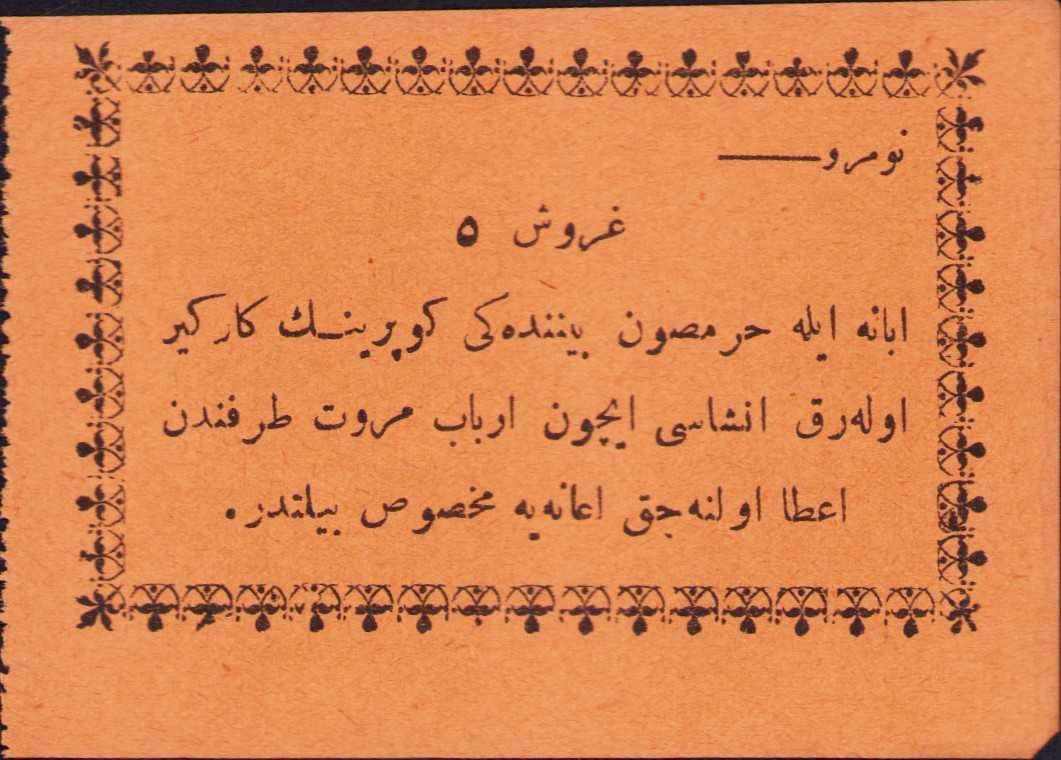 نومرو
غروش ٥
ابانه ايله حرمصون بيننده‌كى كوپرينك كاركير
اوله‌رق انشاسى ايچون ارباب مروت طرفندن
اعطا اولنه‌جق اعانه‌يه مخصوص بيلتدر.